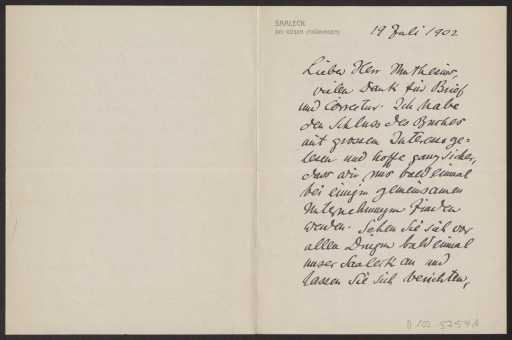 SAALECK
BEI KÖSEN (THÜRINGEN)
19 Juli 1902
Lieber Herr Muthesius,
vielen Dank für Brief
und Correctur. Ich habe
den Schluss des Buches
mit grossem Interesse ge-
lesen und hoffe ganz sicher,
dass wir uns bald einmal
bei einigen gemeinsamen
Unternehmungen finden
werden. Sehen Sie sich vor
allen Dingen bald einmal
unser Saaleck an und
lassen Sie sich berichten,
D 102-5254